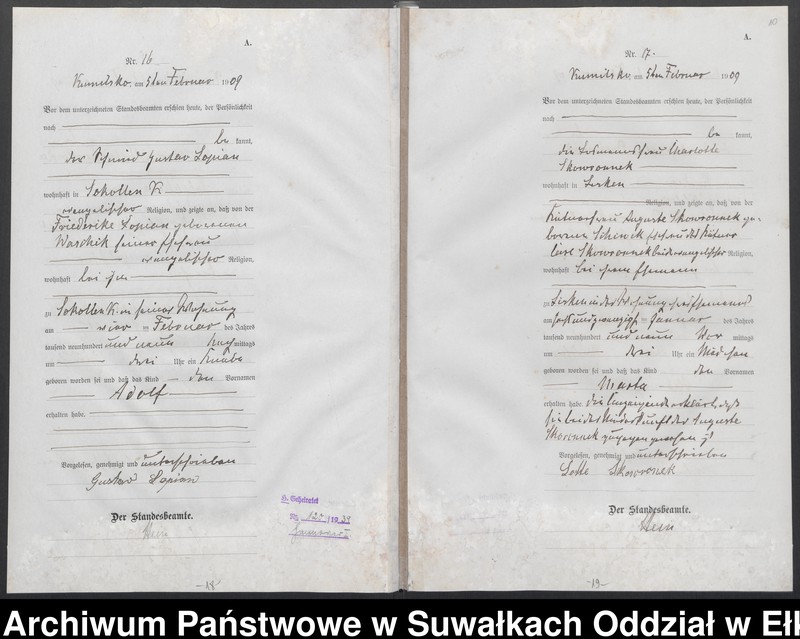 A.
Nr. 16
Kumilsko, am 5ten Februar 1909
Vor dem unterzeichneten Standesbeamten erschien heute, der Persönlichkeit
nach
be kannt,
der Schmied Gustav Lopian
wohnhaft in Sokollen K.
evangelischer Religion, und zeigte an, daß von der
Friederike Lopian geborenen
Waschik seiner Ehefrau
evangelischer Religion,
wohnhaft bei ihm
zu Sokollen K. in seiner Wohnung
am vier ten Februar des Jahres
tausend neunhundert und neun Nach mittags
um drei Uhr ein Knabe
geboren worden sei und daß das Kind den Vornamen
Adolf
erhalten habe.
Vorgelesen, genehmigt und unterschrieben
Gustav Lopian
Der Standesbeamte.
H. Geheiratet
Nr. 120/1934
-18-
10
A.
Nr. 17.
Kumilsko, am 5ten Februar 1909
Vor dem unterzeichneten Standesbeamten erschien heute, der Persönlichkeit
nach
be kannt,
die Losmannsfrau Charlotte
Skowronnek
wohnhaft in Lisken
Religion, und zeigte an, daß von der
Kätnerfrau Auguste Skowronnek ge-
borenen Ehefrau des Kätner
Skowronnek beide evangelischer Religion,
wohnhaft bei ihrem Ehemann
zu Lisken in der Wohnung ihres Ehemanns
am sechsundzwanzigsten Januar des Jahres
tausend neunhundert und neun Vor mittags
um drei Uhr ein Mädchen
geboren worden sei und daß das Kind den Vornamen
Marta
erhalten habe. Die Anzeigende erklärt, daß
sie bei der Niederkunft der Auguste
Skowronnek zugegen gewesen ist
Vorgelesen, genehmigt und unterschrieben
Lotte Skowronek
Der Standesbeamte.
-19-
Archiwum Państwowe w Suwałkach Oddział w Eł